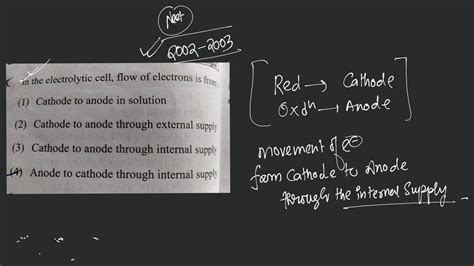 Neet
2002-2003
In the electrolytic cell, flow of electrons is from
(1) Cathode to anode in solution
(2) Cathode to anode through external supply
(3) Cathode to anode through internal supply
(4) Anode to cathode through internal supply
Red → Cathode
Oxdn → Anode
movement of e⊖
from Cathode to Anode
through the internal Supply